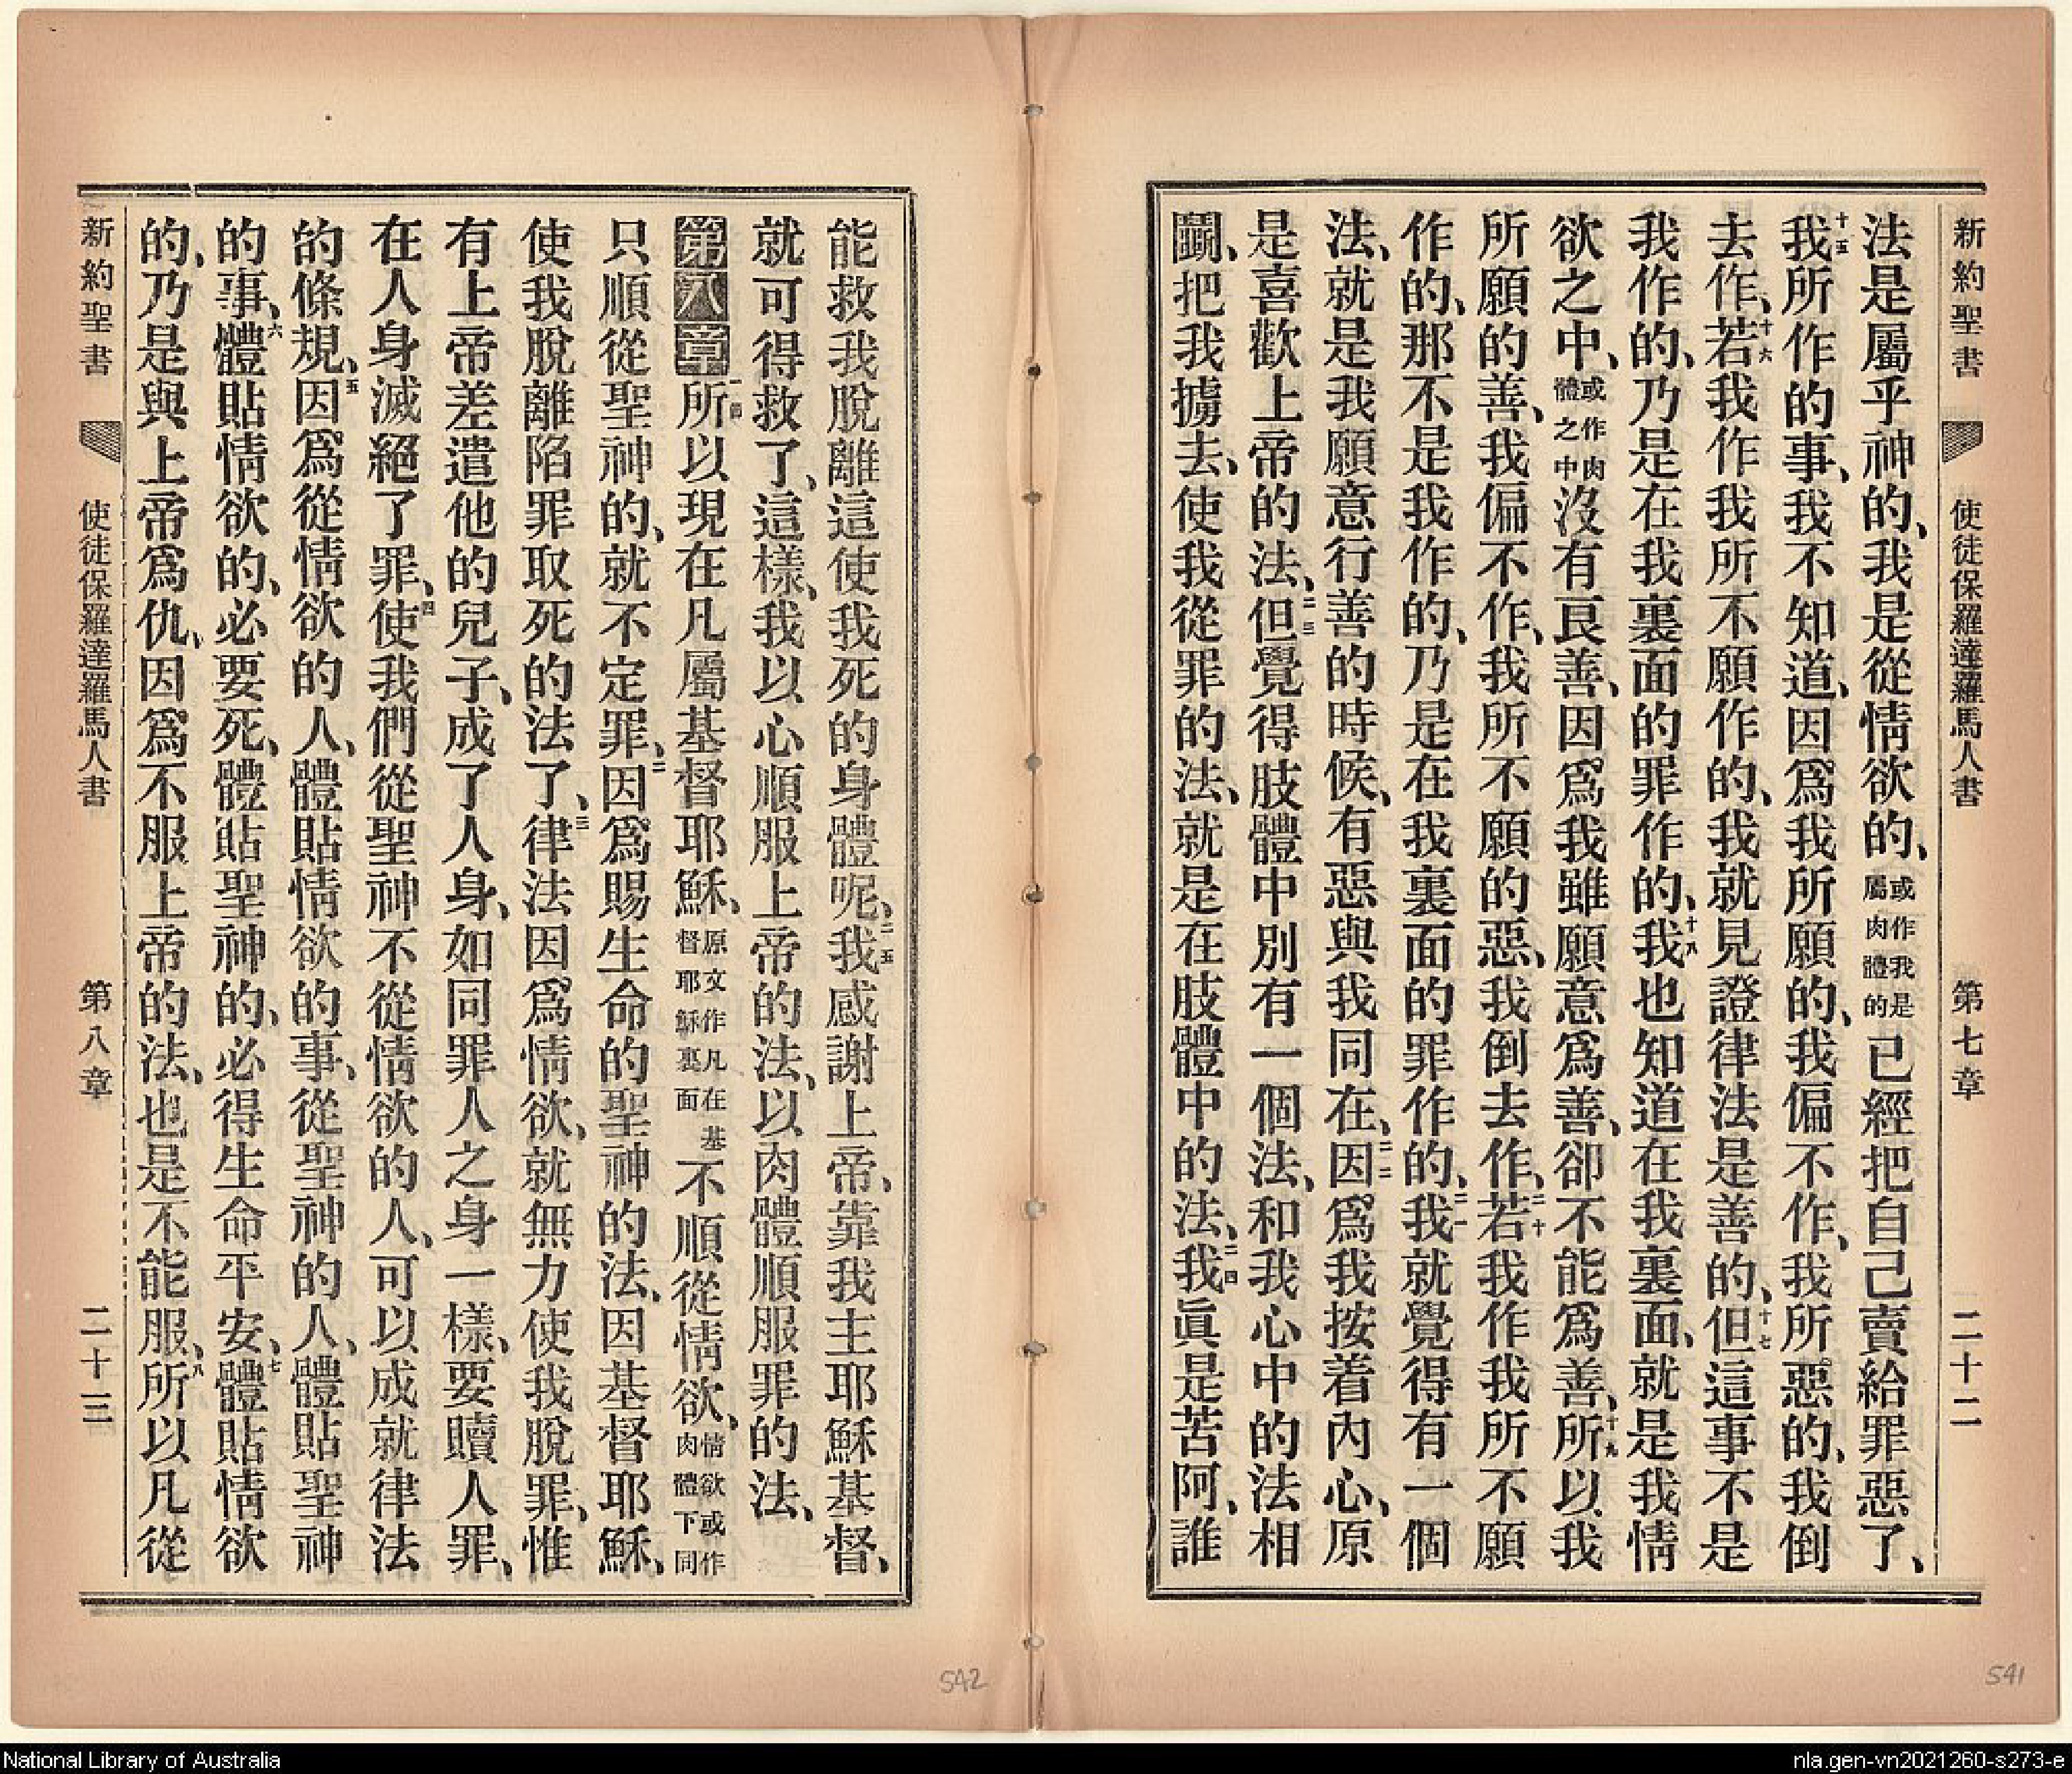 新約聖書 使徒保羅達羅馬人書 第七章 二十二
法是屬乎神的、我是從情欲的、或作我是屬肉體的已經把自己賣給罪惡了、
十五我所作的事、我不知道、因爲我所願的、我偏不作、我所惡的、我倒
去作、十六若我作我所不願作的、我就見證律法是善的、十七但這事不是
我作的、乃是在我裏面的罪作的、十八我也知道在我裏面、就是我情
欲之中、或作肉體之中沒有良善、因爲我雖願意爲善、卻不能爲善、十九所以我
所願的善、我偏不作、我所不願的惡、我倒去作、二十若我作我所不願
作的、那不是我作的、乃是在我裏面的罪作的、二一我就覺得有一個
法、就是我願意行善的時候、有惡與我同在、二二因爲我按着內心、原
是喜歡上帝的法、二三但覺得肢體中別有一個法、和我心中的法相
鬬、把我擄去、使我從罪的法、就是在肢體中的法、二四我眞是苦阿、誰
能救我脫離這使我死的身體呢、二五我感謝上帝、靠我主耶穌基督、
就可得救了、這樣、我以心順服上帝的法、以肉體順服罪的法、
第八章 一節所以現在凡屬基督耶穌、原文作凡在基督耶穌裏面不順從情欲、情欲或作肉體下同
只順從聖神的、就不定罪、二因爲賜生命的聖神的法、因基督耶穌、
使我脫離陷罪取死的法了、三律法因爲情欲、就無力使我脫罪、惟
有上帝差遣他的兒子、成了人身、如同罪人之身一樣、要贖人罪、
在人身滅絕了罪、四使我們從聖神不從情欲的人、可以成就律法
的條規、五因爲從情欲的人、體貼情欲的事、從聖神的人、體貼聖神
的事、六體貼情欲的、必要死、體貼聖神的、必得生命平安、七體貼情欲
的、乃是與上帝爲仇、因爲不服上帝的法、也是不能服、八所以凡從
新約聖書 使徒保羅達羅馬人書 第八章 二十三
542
541
National Library of Australia
nla.gen-vn2021260-s273-e